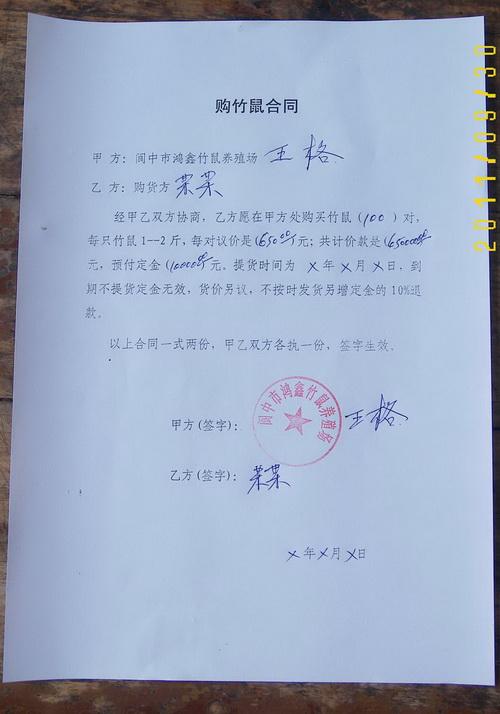 购竹鼠合同
甲 方：阆中市鸿鑫竹鼠养殖场 王格
乙 方：购货方 某某
经甲乙双方协商，乙方愿在甲方处购买竹鼠（100 ）对，
每只竹鼠1--2 斤，每对议价是（650.00元；共计价款是（65000.00
元，预付定金（10000.00元。提货时间为 X 年 X 月 X 日，到
期不提货定金无效，货价另议，不按时发货另增定金的 10%退
款。
以上合同一式两份，甲乙双方各执一份，签字生效。
甲方（签字）： 王格
阆中市鸿鑫竹鼠养殖场
乙方（签字）： 某某
X 年 X 月 X 日
2011/09/30